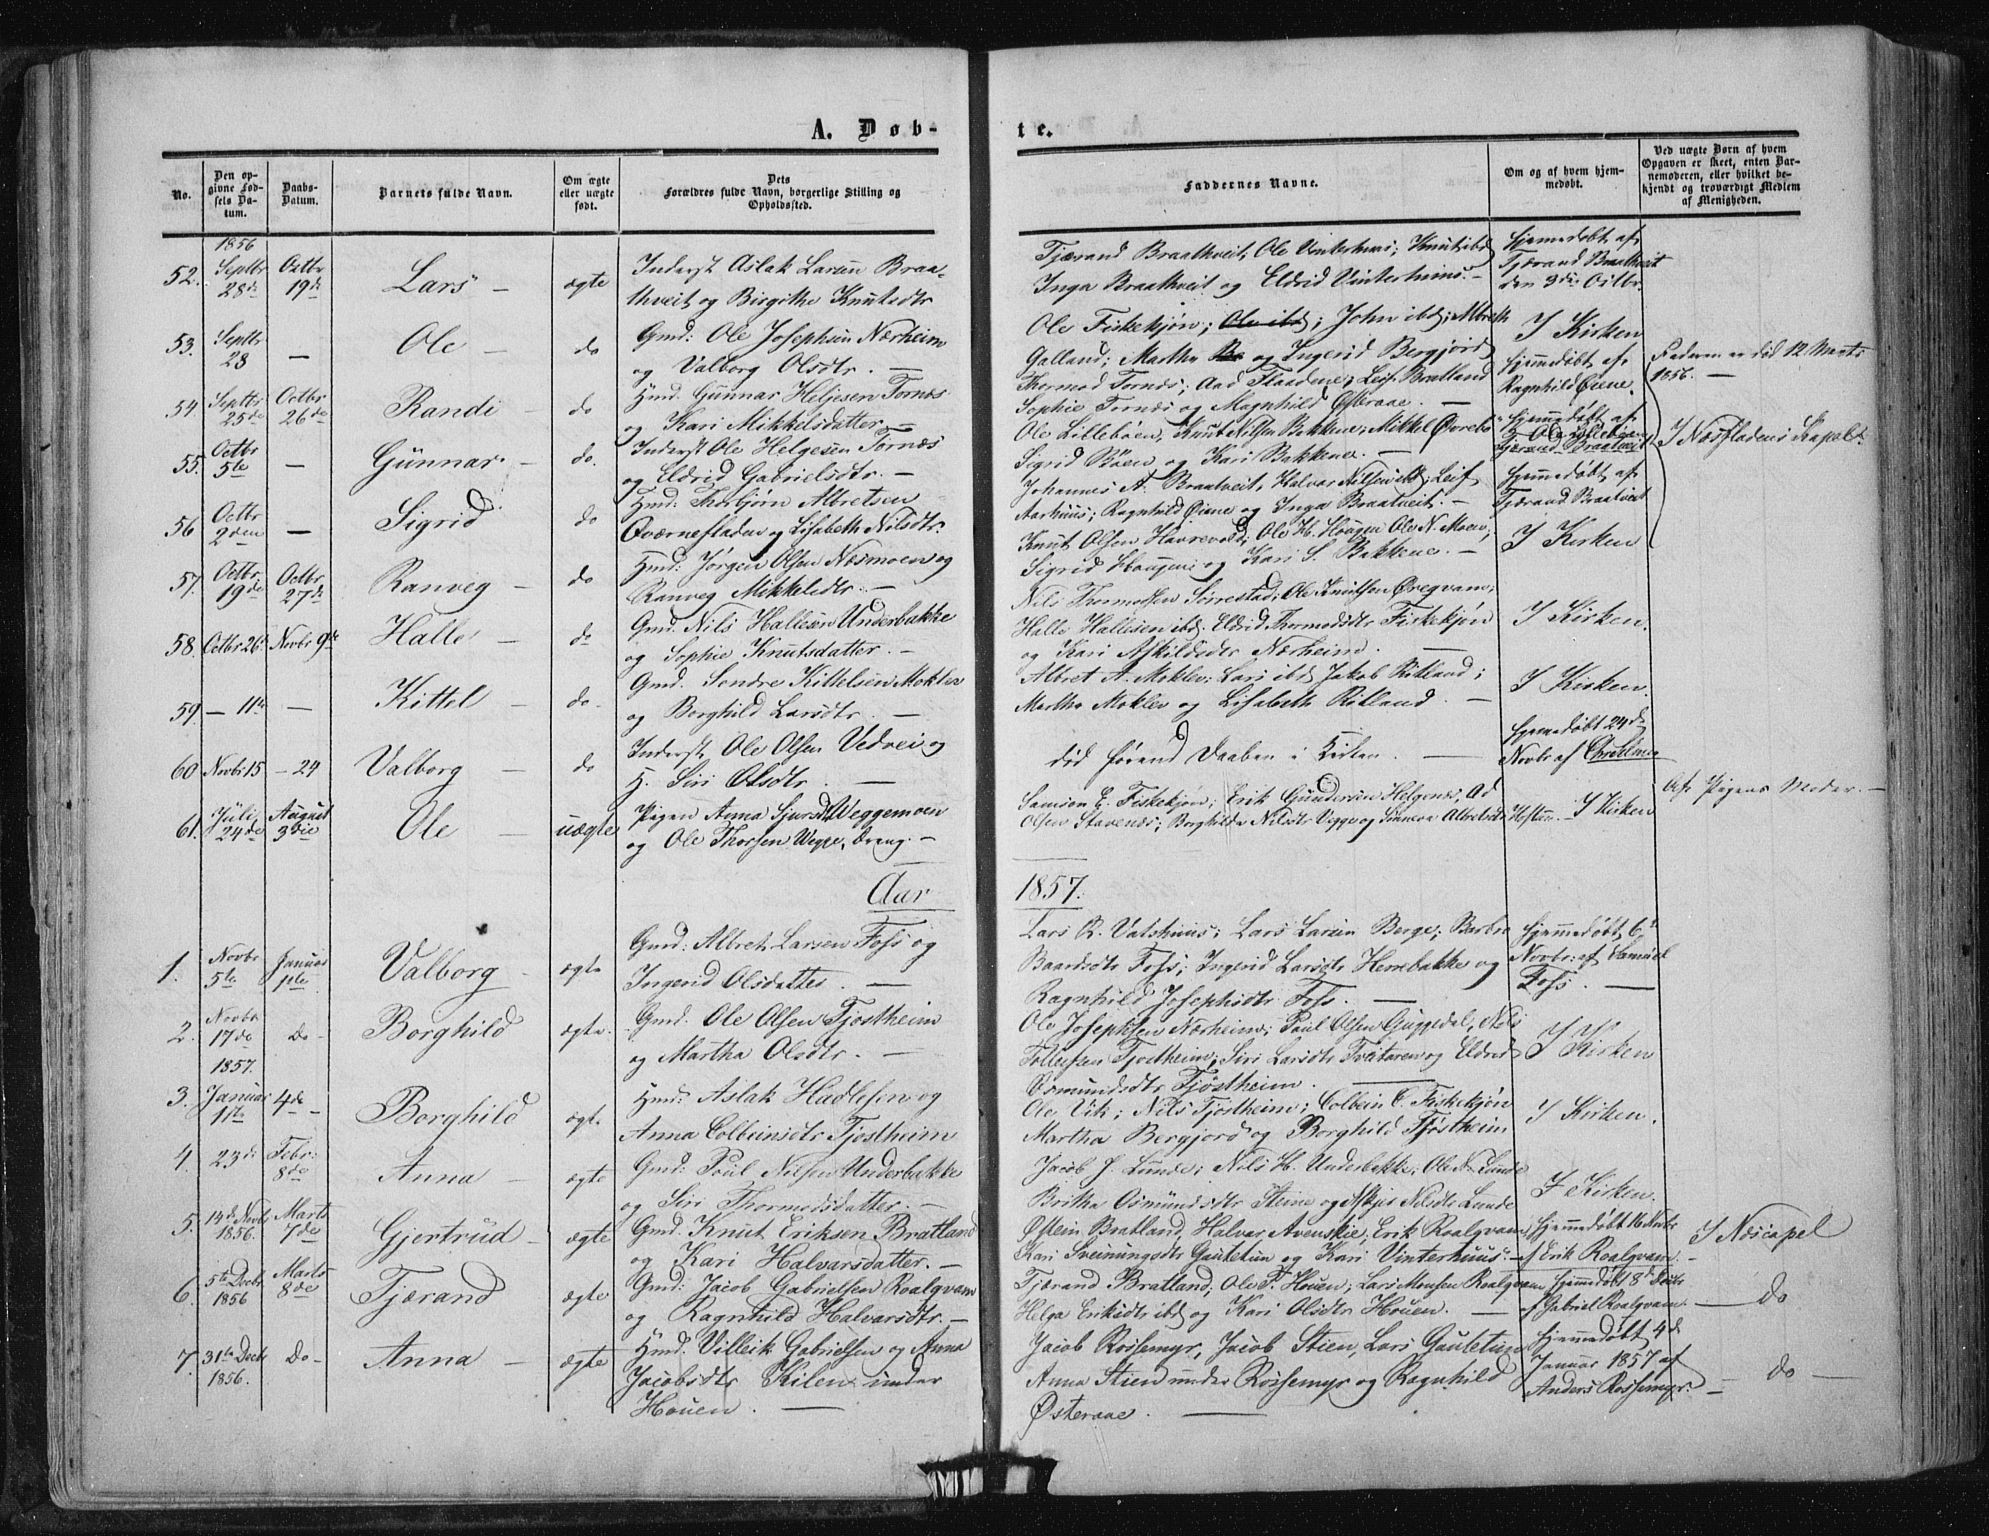 A. Døb-
te.
No.
Den op-
givne Fød-
sels Da-
tum.
Daabs-
Datum.
Barnets fulde Navn.
Om ægte
eller uægte
født.
Dets
Forældres fulde Navn, borgerlige Stilling og
Opholdssted.
Faddernes Navne.
Om og af hvem hjem-
medøbt.
Ved uægte Børn af hvem
Opgaven er skeet, enten Bar-
nemoderen, eller hvilket be-
kjendt og troværdigt Medlem
af Menigheden.
1856
52. Septbr 28de Octbr 19de Lars – ægte
Inderst Aslak Larsen Braa-
thveit og Birgithe Knutsdtr
Tjærand Braathveit, Ole Vinterhuus; Knut ibd
Inga Braathveit og Eldrid Vinterhuus. –
Hjemmedøbt af
Tjærand Braathveit
den 9de Octbr.
53. Septbr 28 – Ole – do
Gmd: Ole Josephsen Nærheim
og Valborg Olsdtr. –
Ole Fiskekjøn; Ole ibd; John ibd; Albreth
Galland; Martha og Ingerid Bergjord
I Kirken
54 Septbr 25de Octbr 26de Randi – do
Hmd: Gunnar Heljesen Tornæs
og Kari Mikkelsdatter –
Thormod Tornæs; Aad Flaadene; Leif Bratland
Sophie Tornæs og Magnhild Østeraae. –
Hjemmedøbt af
Ragnhild Øiene.
Faderen er död 12 Marts
1856. –
55. Octbr 5te – Gunnar – do.
Inderst Ole Helgesen Tornæs
og Eldrid Gabrielsdtr. –
Ole Lillebøen, Knut Nilsen Bakkene; Mikkel Øvrebø
Sigrid Bøen og Kari Bakkene. –
Hjemmedøbt af
Ole Lillebøen
Tjerand Braatveit
I Næsfladens Capel
56 Octbr 2den – Sigrid – do
Hmd: Thorbjørn Albretsen
Qværnefladen og Lisabeth Nilsdtr.
Johannes A. Braatveit, Halvar Nilsen ibd; Leif
Aarhuus; Ragnhild Øiene og Inga Braatveit. –
Hjemmedøbt af
Tjærand Braatveit
57. Octbr. 19de Octbr. 27de Ranveg – do
Hmd: Jørgen Olsen Næsmoen og
Ranveg Mikkelsdtr. –
Knut Olsen Havrevold; Ole H. Hougen Ole N. Moen;
Sigrid Hougen og Kari S. Bakkene. –
I Kirken
58. Octbr 26de Novbr 9de Halle – do
Gmd. Nils Hallesen Underbakke
og Sophie Knutsdatter. –
Nils Thormodsen Sørrestad; Ole Knutsen Øregvam;
Halle Hallesen ibd, Eldrid Thormodsdtr Fiskekjøn
og Kari Askildsdtr Nærheim. –
I Kirken.
59 – 11te – Kittel – do.
Gmd. Sondre Kittelsen Moklev
og Borghild Larsdtr. –
Albret A. Moklev; Lars ibd, Jakob Rilland;
Martha Moklev og Lisabeth Rilland. –
I Kirken.
60 Novbr 15 – 24 Valborg – do
Inderst, Ole Olsen Vedvei og
H. Siri Olsdtr. –
död førend Daaben i Kirken. –
Hjemmedøbt 24de
Novbr af
61. Juli 24de August 3die Ole – uægte
Pigen Anna Sjursdtr Veggemoen
og Ole Thorsen Wegge, Dreng. –
Samson E. Fiskekjøn; Erik Gundersen Helgenæs, Ad
Olsen Stavenæs; Borghilda Nilsdtr Vegge og Sønneva Albretsdtr Hesten. –
I Kirken
Af Pigens Moder. –
Aar 1857.
1. Novbr 5te Januar 1ste Valborg – ægte
Gmd: Albret Larsen Foss og
Ingerid Olsdatter. –
Lars R. Valshuus; Lars Larsen Berge; Barbro
Baardsdtr Foss; Ingerid Larsdtr Herrebakke og
Ragnhild Josephsdtr Foss. –
Hjemmedøbt 6te
Novbr: af Samuel
Foss. –
2. Novbr 17de Do – Borghild – ægte.
Gmd. Ole Olsen Fjostheim
og Martha Olsdtr. –
Ole Josephsen Nærheim; Paul Olsen Guggedal, Nils
Tollefsen Tjostheim; Siri Larsdtr Tvætaren og Eldrid
Osmundsdtr Tjøstheim. –
I Kirken
1857.
3. Januar 1ste 4de – Borghild ægte
Hmd: Aslak Hadlesen og
Anna Colbeinsdtr Tjostheim
Ole Vik; Nils Tjostheim; Colbein C. Fiskekjøn
Martha Bergjord og Borghild Tjøstheim
I Kirken.
4. 23de Febr: 8de Anna – ægte
Gmd: Poul Nilsen Underbakke
og Siri Thormodsdatter. –
Jacob J. Lunde; Nils H. Underbakke; Ole N. Lunde
Britha Osmundsdtr Steine og Askjer Nilsdtr Lunde
I Kirken.
5. 14de Novbr 1856. Marts 7de Gjertrud – ægte
Gmd: Knut Eriksen Bratland
og Kari Halvarsdatter. –
Østein Bratland, Halvar Avenskie; Erik Roalqvam
Kari Sveinungsdtr Gautetun og Kari Vinterhuus. –
Hjemmedøbt 16 Novbr
af Erik Roalqvam. –
I Næscapel
6. 5te Decbr 1856 Marts 8de Tjærand ægte
Gmd: Jacob Gabrielsen Roalqvam
og Ragnhild Halvarsdtr. –
Tjærand Bratland; Ole T. Houen; Lars Monsen Roalqvam
Helga Eriksdtr ibd og Kari Olsdtr Houen. –
Hjemmedøbt 8de Decbr
af Gabriel Roalqvam. –
do
7. 31te Decbr 1856. Do – Anna – ægte
Hmd. Villeik Gabrielsen og Anna
Jacobsdtr Kilen under
Houen. –
Jacob Rossemyr, Jacob Stien, Lars Gautetun
Anna Stien under Rossemyr og Ragnhild
Østeraae. –
Hjemmedøbt 4de
Januar 1857 af
Anders Rossemyr. –
do –